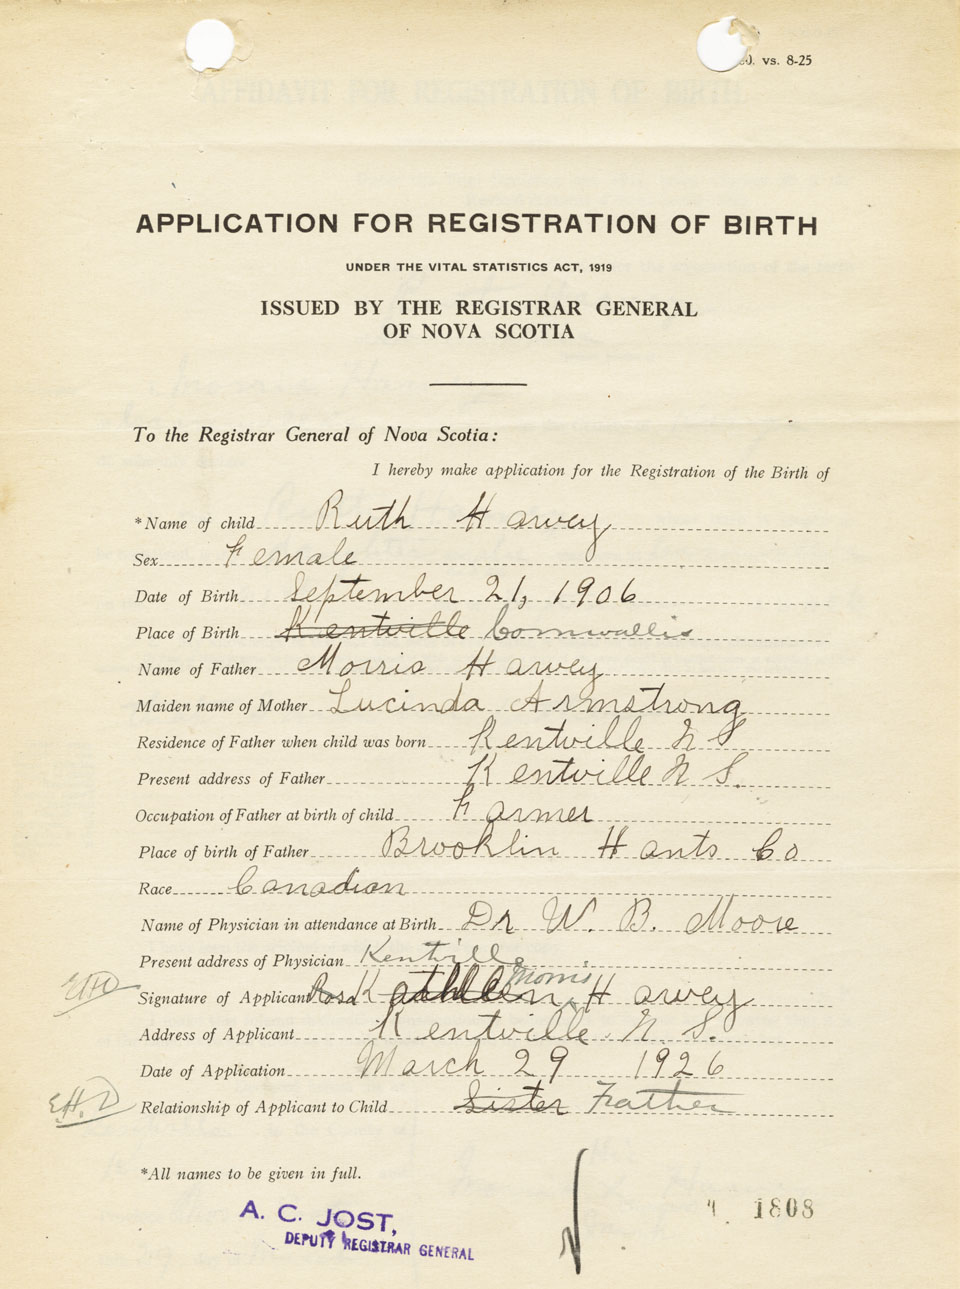 vs. 8-25
APPLICATION FOR REGISTRATION OF BIRTH
UNDER THE VITAL STATISTICS ACT, 1919
ISSUED BY THE REGISTRAR GENERAL
OF NOVA SCOTIA
To the Registrar General of Nova Scotia:
I hereby make application for the Registration of the Birth of
*Name of child Ruth Harvey
Sex Female
Date of Birth September 21, 1906
Place of Birth Kentville Cornwallis
Name of Father Morris Harvey
Maiden name of Mother Lucinda Armstrong
Residence of Father when child was born Kentville N S
Present address of Father Kentville N S.
Occupation of Father at birth of child Farmer
Place of birth of Father Brooklin Hants Co
Race Canadian
Name of Physician in attendance at Birth Dr W. B. Moore
Present address of Physician Kentville
Signature of Applicant Kathleen Morris Harvey
Address of Applicant Kentville N S.
Date of Application March 29 1926
Relationship of Applicant to Child Sister Father
*All names to be given in full.
A. C. JOST,
DEPUTY REGISTRAR GENERAL
1808